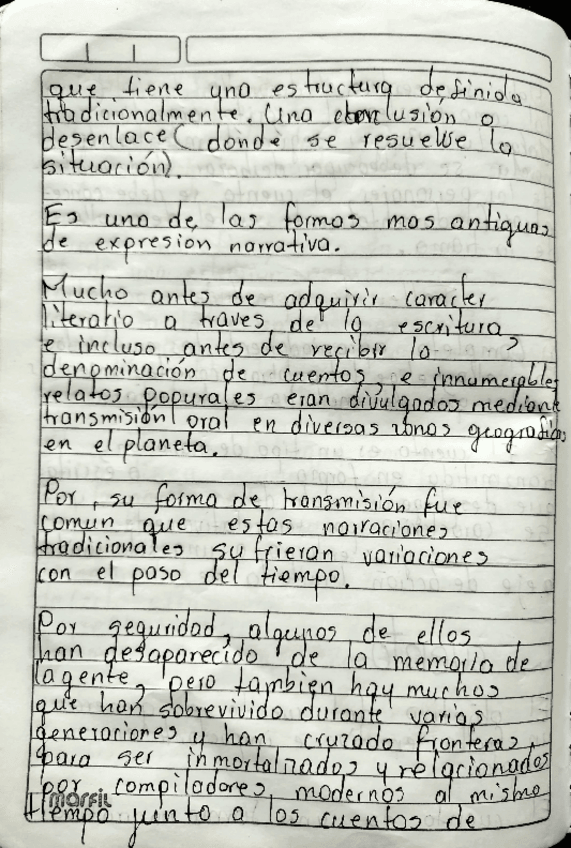 que tiene una estructura definida
tradicionalmente. Una conclusión o
desenlace (donde se resuelve la
situación).
Es uno de las formas mas antiguas
de expresion narrativa.
Mucho antes de adquirir caracter
literario a traves de la escritura,
e incluso antes de recibir la
denominación de cuentos, e innumerables
relatos popurales eran divulgados mediante
transmisión oral en diversas zonas geograficas
en el planeta.
Por, su forma de transmisión fue
comun que estas narraciones
tradicionales sufrieran variaciones
con el paso del tiempo.
Por seguridad, algunos de ellos
han desaparecido de la memoria de
la gente, pero tambien hay muchos
que han sobrevivido durante varias
generaciones y han cruzado fronteras,
para ser inmortalizados y relacionados
por compiladores, modernos al mismo
marfil
tiempo junto a los cuentos de